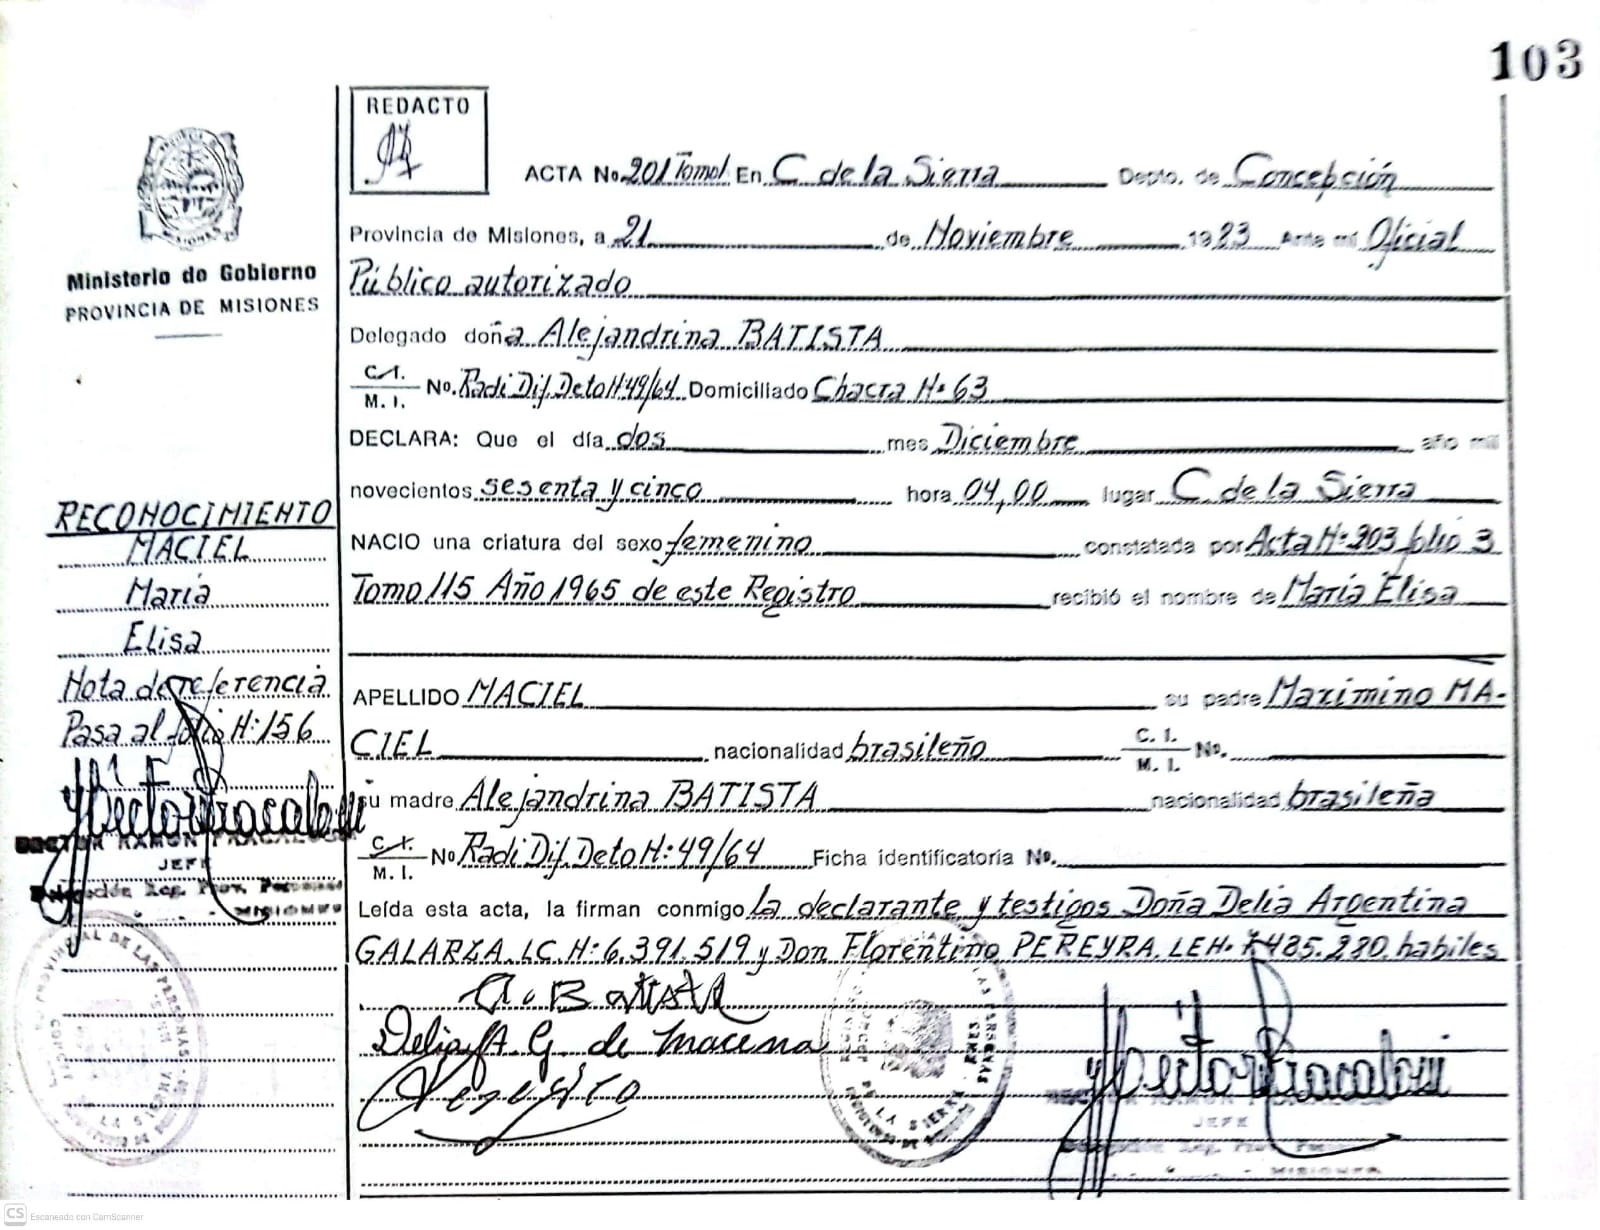 103
REDACTO
ACTA No. 201 Tomo I En C. de la Sierra Depto. de Concepción
Provincia de Misiones, a 21 de Noviembre 1983 Ante mi Oficial
Público autorizado
Delegado doña Alejandrina BATISTA
C.I.
M. I. No. Radi Dif. Deto Nº 49/64 Domiciliado Chacra Nº 63
DECLARA: Que el día dos mes Diciembre año mil
novecientos sesenta y cinco hora 04,00 lugar C. de la Sierra
NACIO una criatura del sexo femenino constatada por Acta Nº 203 folio 3
Tomo 115 Año 1965 de este Registro recibió el nombre de María Elisa
APELLIDO MACIEL su padre Maximino MA-
CIEL nacionalidad brasileño C. I.
M. I. No.
su madre Alejandrina BATISTA nacionalidad brasileña
C.I.
M. I. No Radi Dif. Deto Nº 49/64 Ficha identificatoria No.
Leída esta acta, la firman conmigo la declarante y testigos Doña Delia Argentina
GALARZA. LC. Nº 6.391.519 y Don Florentino PEREYRA. LE Nº 485.280. habiles
A. Batista
Delia A. G. de Macena
HECTOR RAMON FRACALOSSI
JEFE
Delegación Reg. Prov. Personas
MISIONES
Ministerio de Gobierno
PROVINCIA DE MISIONES
RECONOCIMIENTO
MACIEL
María
Elisa
Nota de referencia
Pasa al folio Nº 156
HECTOR RAMON FRACALOSSI
JEFE
Delegación Reg. Prov. Personas
MISIONES
PROVINCIAL DE LAS PERSONAS
DE LA SIERRA
CS Escaneado con CamScanner